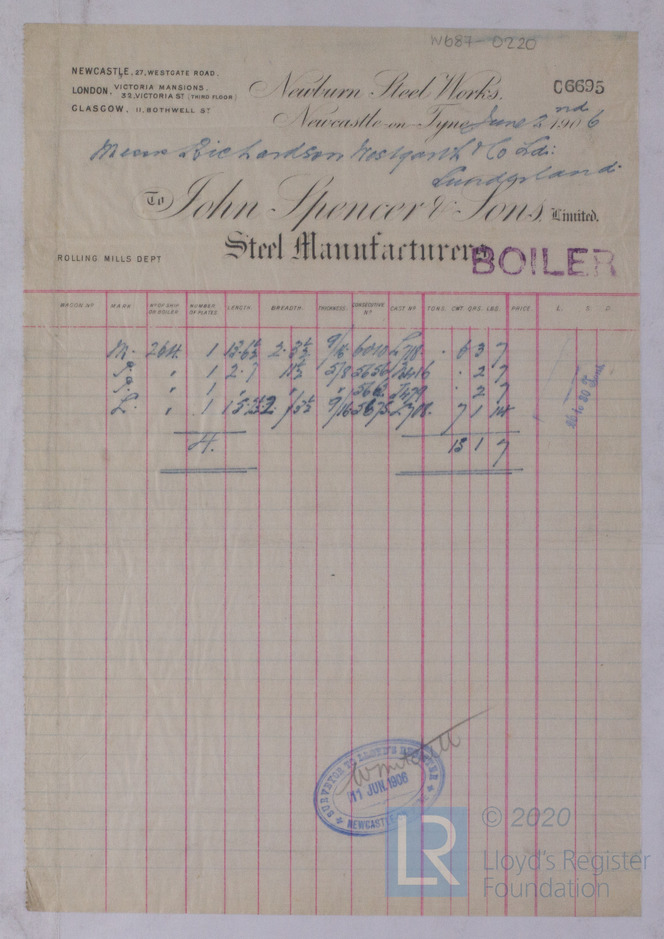 W687-0220
NEWCASTLE, 27, WESTGATE ROAD.
LONDON, VICTORIA MANSIONS. 32, VICTORIA ST (THIRD FLOOR)
GLASGOW, 11, BOTHWELL ST
Newburn Steel Works.
06695
Newcastle-on-Tyne June 2nd 1906
Messrs Richardson Westgarth & Co Ld:
Sunderland.
To John Spencer & Sons, Limited.
Steel Manufacturers
BOILER
ROLLING MILLS DEPT
WAGON No MARK. No OF SHIP OR BOILER NUMBER OF PLATES. LENGTH. BREADTH. THICKNESS. CONSECUTIVE No CAST No TONS. CWT. QRS. LBS. PRICE £. S. D.
M. 264. 1 9/16 6 3 7
" 1 2.7 5/8 5656 . 2 7
" " 2 7
L. " 1 9/16 5675 7 1 14
4. 13 1 7
SURVEYOR TO LLOYD'S REGISTER
W Mitchell
11 JUN. 1906
NEWCASTLE
LR
© 2020
Lloyd's Register
Foundation